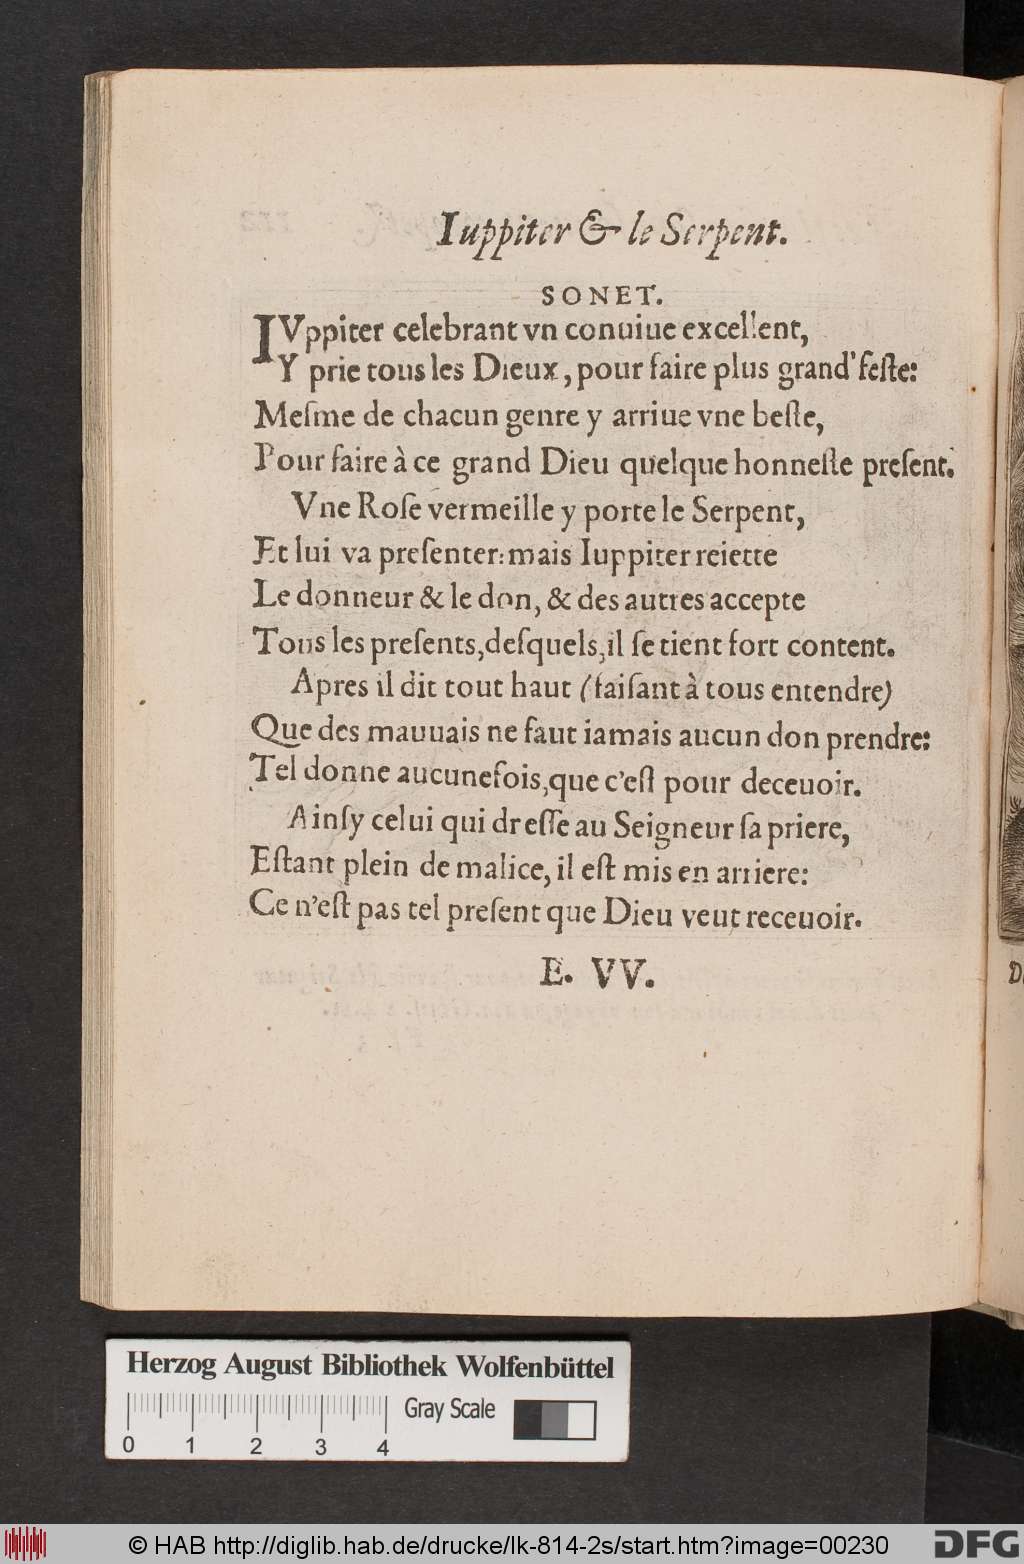 Iuppiter & le Serpent.
SONET.
IVppiter celebrant vn conuiue excellent,
Y prie tous les Dieux, pour faire plus grand' feſte:
Meſme de chacun genre y arriue vne beſte,
Pour faire à ce grand Dieu quelque honneſte preſent.
Vne Roſe vermeille y porte le Serpent,
Et lui va preſenter: mais Iuppiter reiette
Le donneur & le don, & des autres accepte
Tous les preſents, deſquels, il ſe tient fort content.
Apres il dit tout haut (faiſant à tous entendre)
Que des mauuais ne faut iamais aucun don prendre:
Tel donne aucunefois, que c'eſt pour deceuoir.
Ainſy celui qui dreſſe au Seigneur ſa priere,
Eſtant plein de malice, il eſt mis en arriere:
Ce n'eſt pas tel preſent que Dieu veut receuoir.
E. VV.
Herzog August Bibliothek Wolfenbüttel
Gray Scale
0 1 2 3 4
© HAB http://diglib.hab.de/drucke/lk-814-2s/start.htm?image=00230
DFG